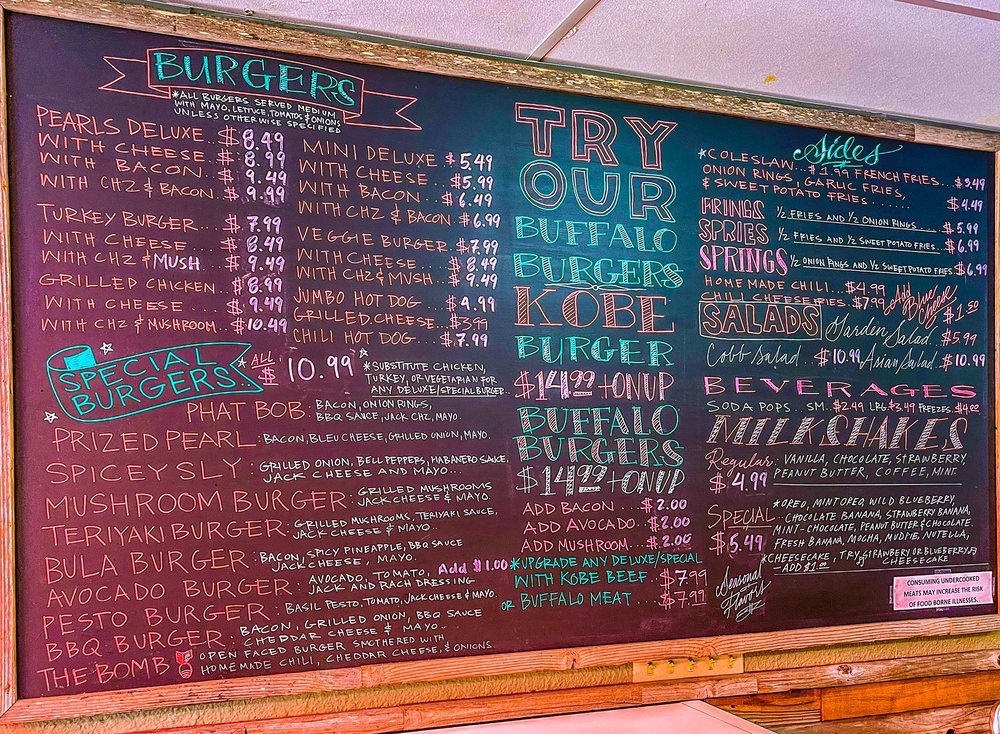 BURGERS
*ALL BURGERS SERVED MEDIUM
WITH MAYO, LETTUCE, TOMATOS & ONIONS
UNLESS OTHERWISE SPECIFIED
PEARLS DELUXE $8.49
WITH CHEESE... $8.99
WITH BACON... $9.49
WITH CHZ & BACON. $9.99
TURKEY BURGER... $7.99
WITH CHEESE... $8.49
WITH CHZ & MUSH... $9.49
GRILLED CHICKEN.. $8.99
WITH CHEESE... $9.49
WITH CHZ & MUSHROOM... $10.49
MINI DELUXE.. $5.49
WITH CHEESE.. $5.99
WITH BACON... $6.49
WITH CHZ & BACON. $6.99
VEGGIE BURGER.. $7.99
WITH CHEESE... $8.49
WITH CHZ & MUSH.. $9.49
JUMBO HOT DOG... $4.99
GRILLED CHEESE... $3.99
CHILI HOT DOG... $7.99
SPECIAL
BURGERS..
*ALL $ 10.99
*SUBSTITUTE CHICKEN,
TURKEY, OR VEGETARIAN FOR
ANY DELUXE/SPECIAL BURGER..
PHAT BOB: BACON, ONION RINGS,
BBQ SAUCE, JACK CHZ, MAYO.
PRIZED PEARL: BACON, BLEU CHEESE, GRILLED ONION, MAYO.
SPICEY SLY: GRILLED ONION, BELL PEPPERS, HABANERO SAUCE,
JACK CHEESE AND MAYO...
MUSHROOM BURGER: GRILLED MUSHROOMS
JACK CHEESE & MAYO.
TERIYAKI BURGER: GRILLED MUSHROOMS, TERIYAKI SAUCE,
JACK CHEESE & MAYO.
BULA BURGER: BACON, SPICY PINEAPPLE, BBQ SAUCE
JACK CHEESE, MAYO.
AVOCADO BURGER: AVOCADO, TOMATO, Add $1.00
JACK AND RACH DRESSING
PESTO BURGER: BASIL PESTO, TOMATO, JACK CHEESE & MAYO.
BBQ BURGER: BACON, GRILLED ONION, BBQ SAUCE
CHEDDAR CHEESE & MAYO..
THE BOMB: OPEN FACED BURGER SMOTHERED WITH
HOMEMADE CHILI, CHEDDAR CHEESE, & ONIONS.
TRY
OUR
BUFFALO
BURGERS
KOBE
BURGER
$14.99 + ON UP
BUFFALO
BURGERS
$14.99 + ON UP
ADD BACON... $2.00
ADD AVOCADO... $2.00
ADD MUSHROOM.. $2.00
*UPGRADE ANY DELUXE/SPECIAL
WITH KOBE BEEF.. $7.99
OR BUFFALO MEAT... $7.99
Sides
*COLESLAW... $1.99 FRENCH FRIES... $3.49
ONION RINGS, GARLIC FRIES,
& SWEET POTATO FRIES... $4.49
FRINGS 1/2 FRIES AND 1/2 ONION RINGS... $5.99
SPRIES 1/2 FRIES AND 1/2 SWEET POTATO FRIES... $6.99
SPRINGS 1/2 ONION RINGS AND 1/2 SWEET POTATO FRIES $6.99
HOMEMADE CHILI... $4.99
CHILI CHEESE FRIES.. $7.99
Add Blue Cheese $1.50
SALADS Garden Salad.. $5.99
Cobb Salad.. $10.99 Asian Salad.. $10.99
BEVERAGES
SODA POPS.. SM. $2.49 LRG $3.49 FREEZES. $4.02
MILKSHAKES
Regular: VANILLA, CHOCOLATE, STRAWBERRY,
PEANUT BUTTER, COFFEE, MINT.
$4.99
SPECIAL
$5.49
*OREO, MINT OREO, WILD BLUEBERRY,
CHOCOLATE BANANA, STRAWBERRY BANANA,
MINT-CHOCOLATE, PEANUT BUTTER & CHOCOLATE
FRESH BANANA, MOCHA, MUDPIE, NUTELLA,
*CHEESECAKE, TRY STRAWBERY OR BLUEBERRY
CHEESECAKE
—ADD $1.00
Seasonal
Flavors
CONSUMING UNDERCOOKED
MEATS MAY INCREASE THE RISK
OF FOOD BORNE ILLNESSES.